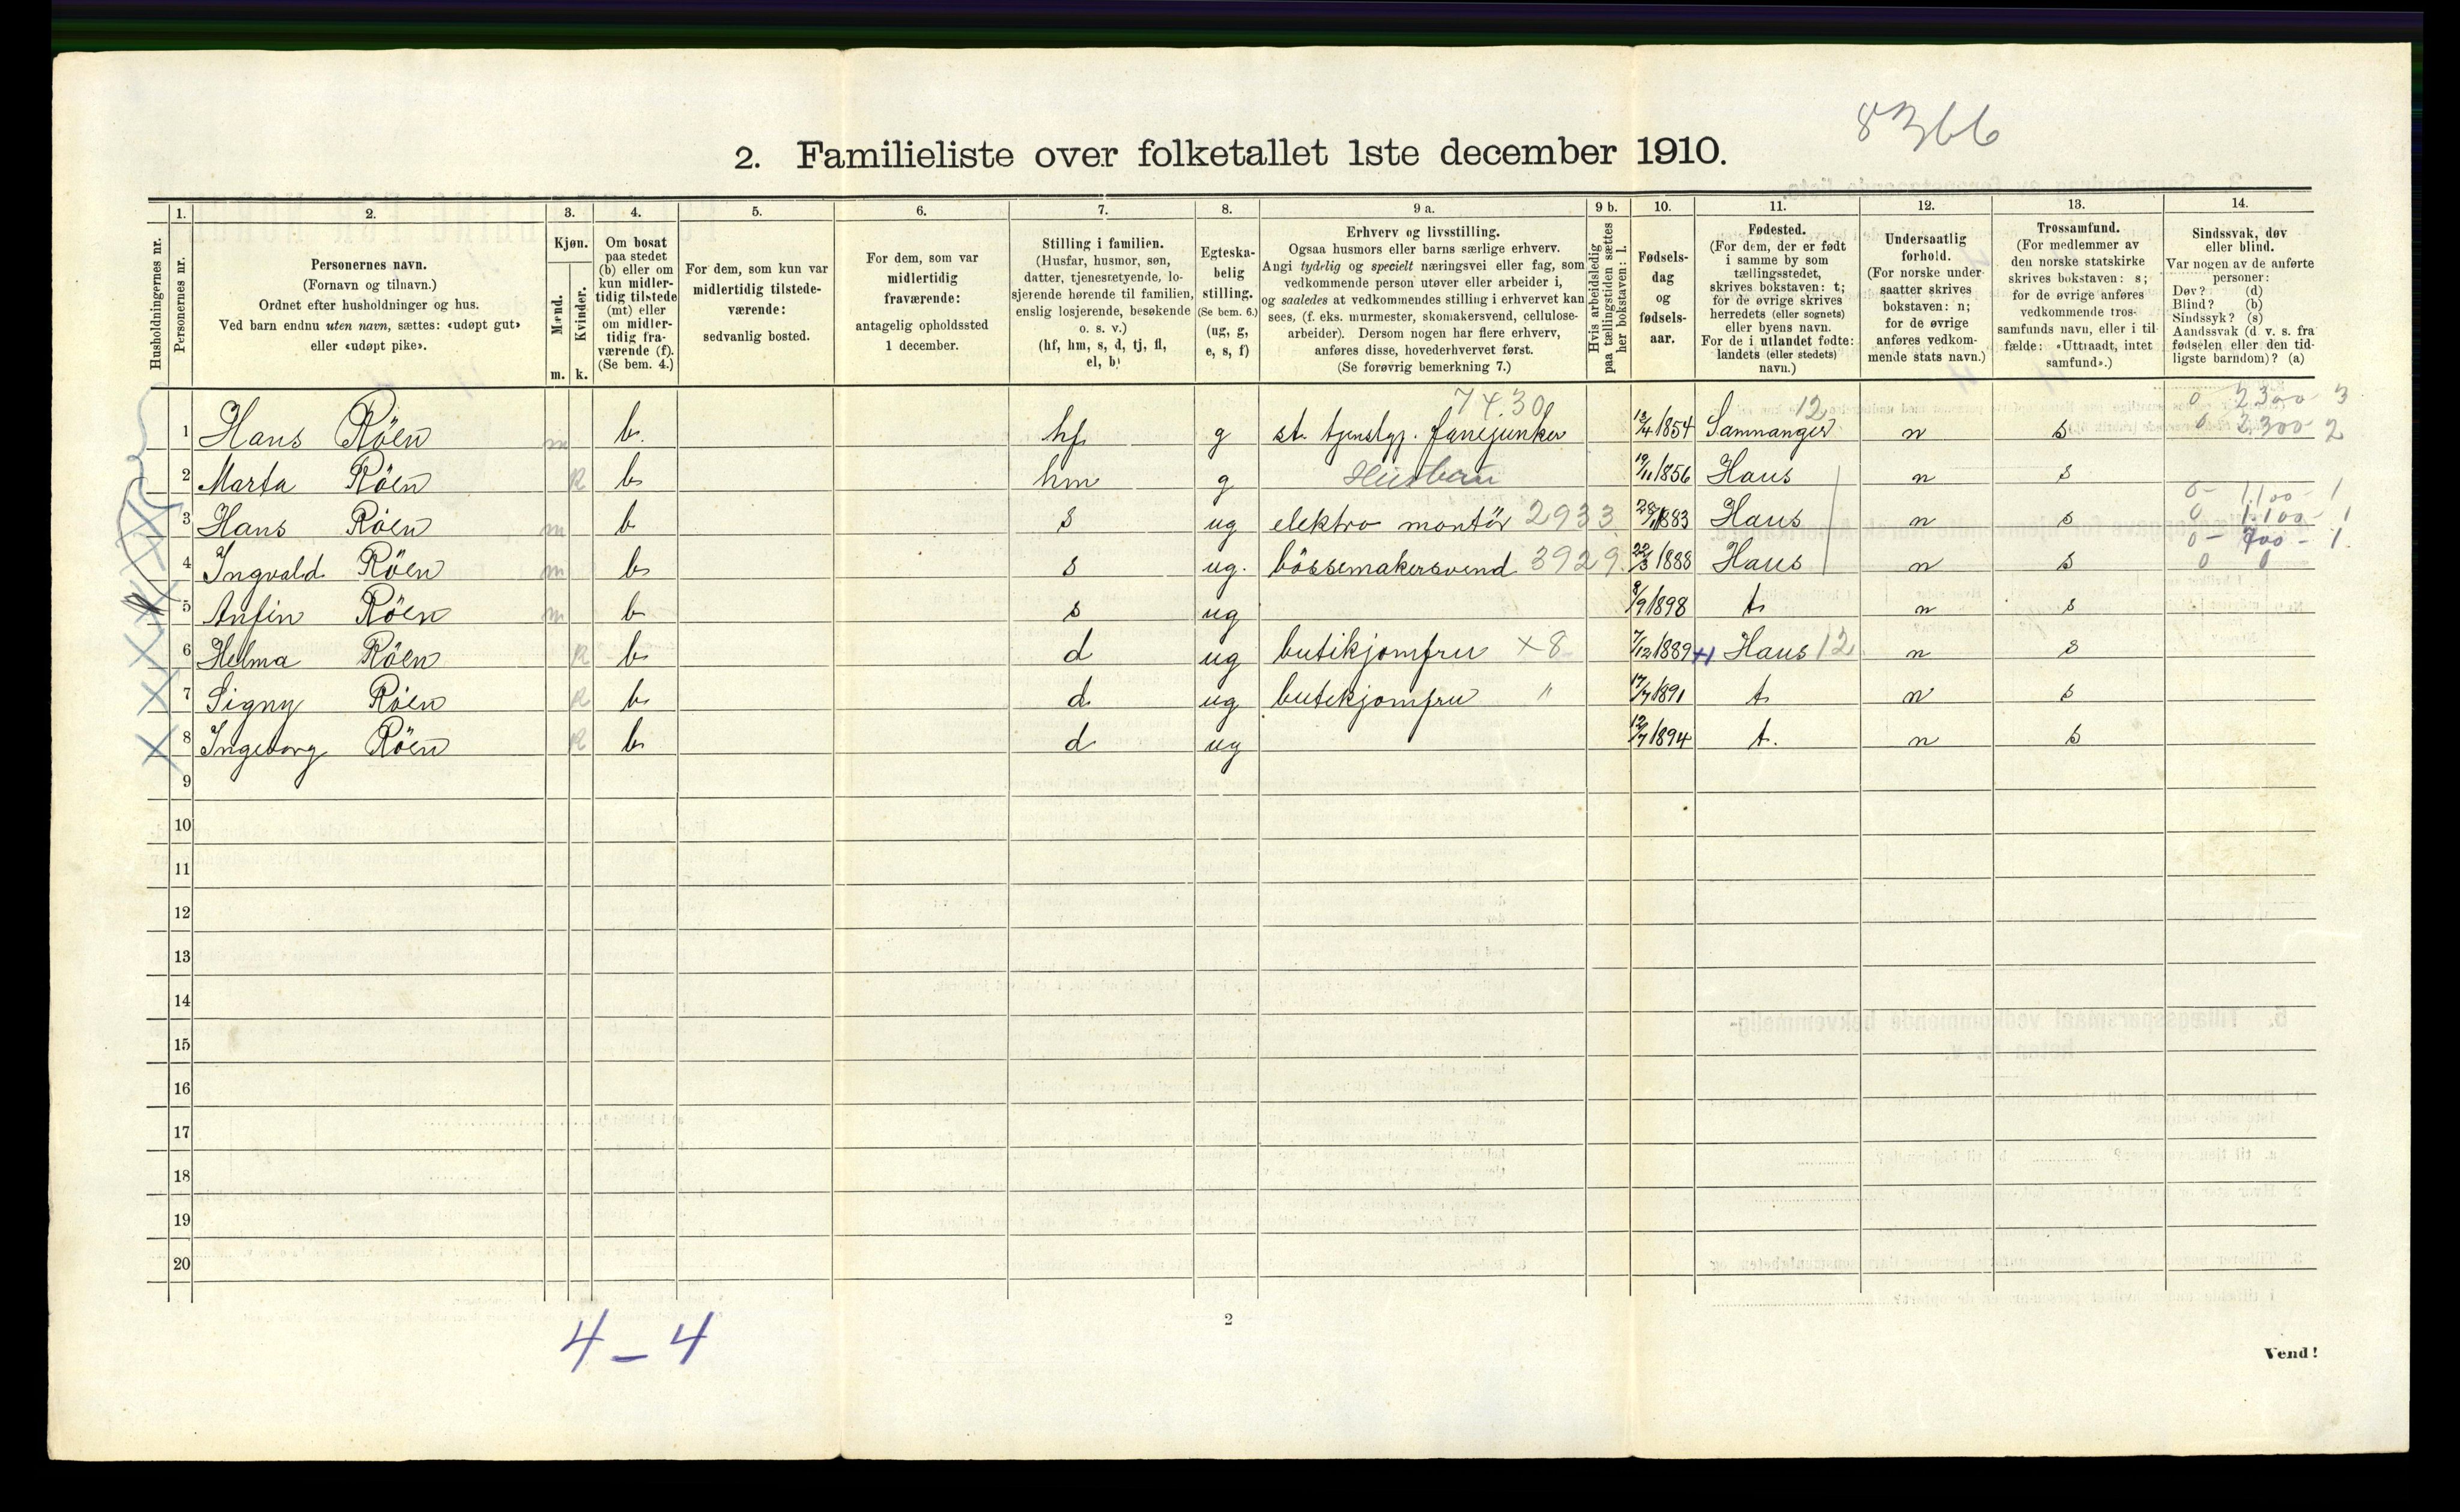 8366
2. Familieliste over folketallet 1ste december 1910.
Husholdningernes nr.
1. Personernes nr.
2. Personernes navn.
(Fornavn og tilnavn.)
Ordnet efter husholdninger og hus.
Ved barn endnu uten navn, sættes: «udøpt gut»
eller «udøpt pike».
3. Kjøn.
Mænd. m.
Kvinder. k.
4. Om bosat
paa stedet
(b) eller om
kun midler-
tidig tilstede
(mt) eller
om midler-
tidig fra-
værende (f).
(Se bem. 4.)
5. For dem, som kun var
midlertidig tilstede-
værende:
sedvanlig bosted.
6. For dem, som var
midlertidig
fraværende:
antagelig opholdssted
1 december.
7. Stilling i familien.
(Husfar, husmor, søn,
datter, tjenestetyende, lo-
sjerende hørende til familien,
enslig losjerende, besøkende
o. s. v.)
(hf, hm, s, d, tj, fl,
el, b)
8. Egteska-
belig
stilling.
(Se bem. 6.)
(ug, g,
e, s, f)
9 a. Erhverv og livsstilling.
Ogsaa husmors eller barns særlige erhverv.
Angi tydelig og specielt næringsvei eller fag, som
vedkommende person utøver eller arbeider i,
og saaledes at vedkommendes stilling i erhvervet kan
sees, (f. eks. murmester, skomakersvend, cellulose-
arbeider). Dersom nogen har flere erhverv,
anføres disse, hovederhvervet først.
(Se forøvrig bemerkning 7.)
9 b. Hvis arbeidsledig
paa tællingstiden sættes
her bokstaven: l.
10. Fødsels-
dag
og
fødsels-
aar.
11. Fødested.
(For dem, der er født
i samme by som
tællingsstedet,
skrives bokstaven: t;
for de øvrige skrives
herredets (eller sognets)
eller byens navn.
For de i utlandet fødte:
landets (eller stedets)
navn.)
12. Undersaatlig
forhold.
(For norske under-
saatter skrives
bokstaven: n;
for de øvrige
anføres vedkom-
mende stats navn.)
13. Trossamfund.
(For medlemmer av
den norske statskirke
skrives bokstaven: s;
for de øvrige anføres
vedkommende tros-
samfunds navn, eller i til-
fælde: «Uttraadt, intet
samfund».)
14. Sindssvak, døv
eller blind.
Var nogen av de anførte
personer:
Døv? (d)
Blind? (b)
Sindssyk? (s)
Aandssvak (d. v. s. fra
fødselen eller den tid-
ligste barndom)? (a)
74.30 12 0 2300 3
1 Hans Röen m b. hf g st. tjenstgj. fanejunker 12/4 1854 Samnanger n s 0 2.300 2
2 Marta Röen k b hm g Hustru 19/11 1856 Haus n s
0- 1.100- 1
3 Hans Röen m b s ug elektro montör 2933 1883 Haus n s 0 1.100- 1
0- 700- 1.
4 Ingvald Röen m b s ug. bössemakersvend 3929. 22/3 1888 Haus n s 0 0
5 Anfin Röen m b s ug 8/9 1898 t. n s
6 Helma Röen k b d ug butikjomfru ×8 7/12 1889 +1 Haus 12. n s
7 Signy Röen k b. d ug butekjomfru " 17/7 1891 t. n s
8 Ingeborg Röen k b d ug 12/7 1894 t. n s
9
10
11
12
13
14
15
16
17
18
19
20
4-4
2
Vend!